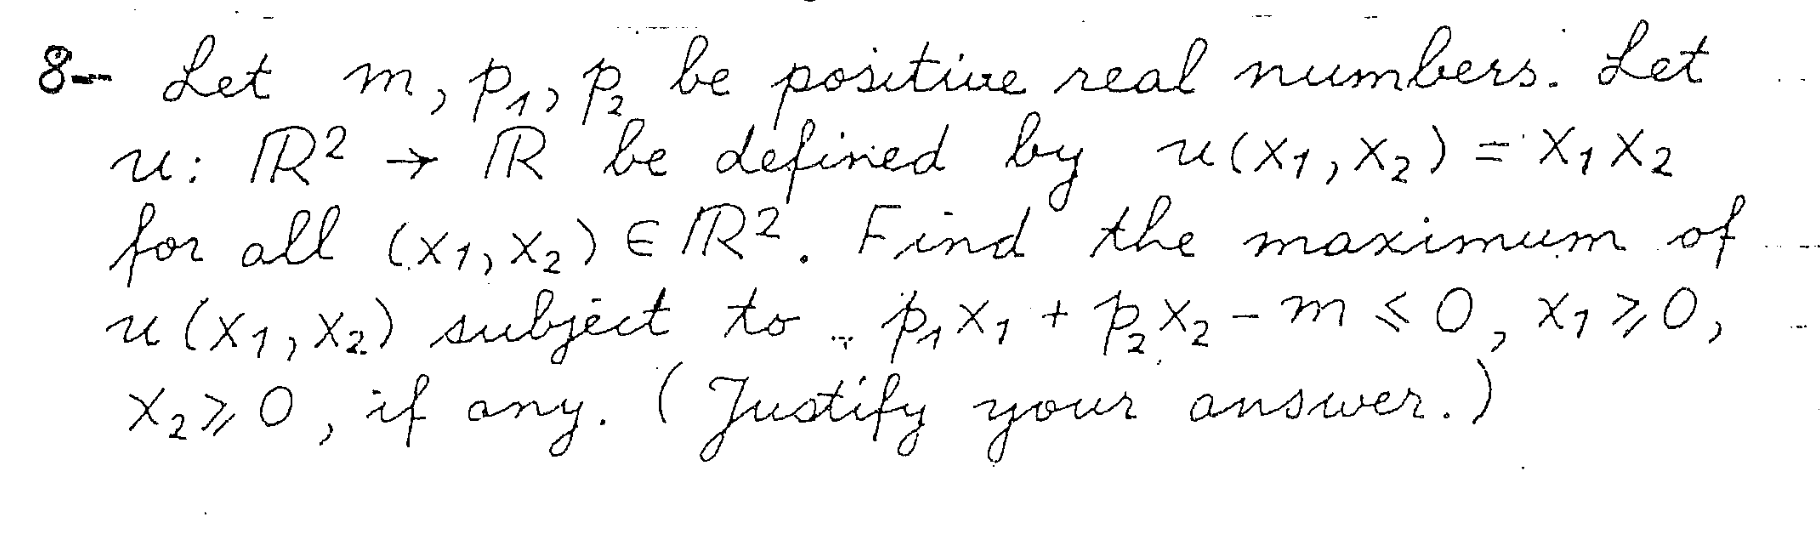 8-- Let m, p₁, p₂ be positive real numbers. Let
u: ℝ² → ℝ be defined by u(x₁, x₂) = x₁x₂
for all (x₁, x₂) ∈ ℝ². Find the maximum of
u(x₁, x₂) subject to p₁x₁ + p₂x₂ - m ⩽ 0, x₁ ⩾ 0,
x₂ ⩾ 0, if any. (Justify your answer.)